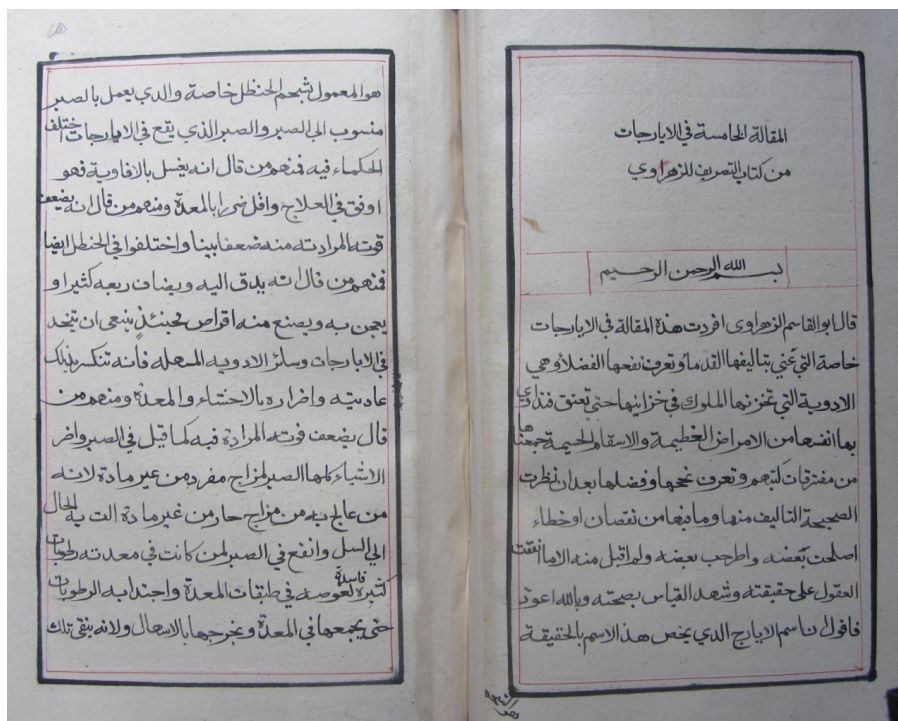 المقالة الخامسة في الايارجات
من كتاب التصريف للزهراوي
بسم الله الرحمن الرحيم
قال ابو القاسم الزهراوى افردت هذه المقالة في الايارجات
خاصة التي عني بتاليفها القدماء وتعرف نفعها الفضلاء وهي
الادوية التي تخزنها الملوك في خزانيها حتي تعتق
بها انفسها من الامراض العظيمة والاسقام الجسيمة جمعتها
من مفترقات كتبهم وتعرف نججها وفضلها بعد ان نظرت
الصحيحة التاليف منها وما فيها من نقصان او خطاء
اصلحت بعضه واطرحت بعضه ولم اقبل منه الا ما اتفقت
العقول على حقيقته وشهد القياس بصحته وبالله اعوذ
فاقول ان اسم الايارج الدي يخص هذ الاسم بالحقيقة
هو
هو المعمول بشحم الحنظل خاصة والدي يعمل بالصبر
منسوب الى الصبر والصبر الذي يقع في الايارجات اختلف
الحكماء فيه فمنهم من قال انه يغسل بالافاوية فهو
اوفق في العلاج واقل ضررا بالمعدة ومنهم من قال انه يضعف
قوته المرادته منه ضعفا بينا واختلفوا في الحنظل ايضا
فمنهم من قال انه يدق اليه ويضاف ربعه كثيرا و
يعجن به ويصنع منه اقراص فحينئذ ينبعى ان تتخد
في الايارجات وسائر الادويه المسهله فانه تنكسر بذلك
عاديته واضراره بالاحشاء والمعدة ومنهم من
قال يضعف قوته المرادة فيه كما قيل في الصبر واضر
الاشياء كلها الصبر لمزاج مفرد من غير مادة لانه
من عالج به من مزاج حار من غير مادة الت به الحال
الي السل وانفع في الصبر لمن كانت في معدته رطوبات
كثيرة فاسدة لغوصه في طبقات المعدة واجتدابه الرطوبات
حتى يجمعها في المعدة ويخرجها بالاسهال ولانه ينقى تلك